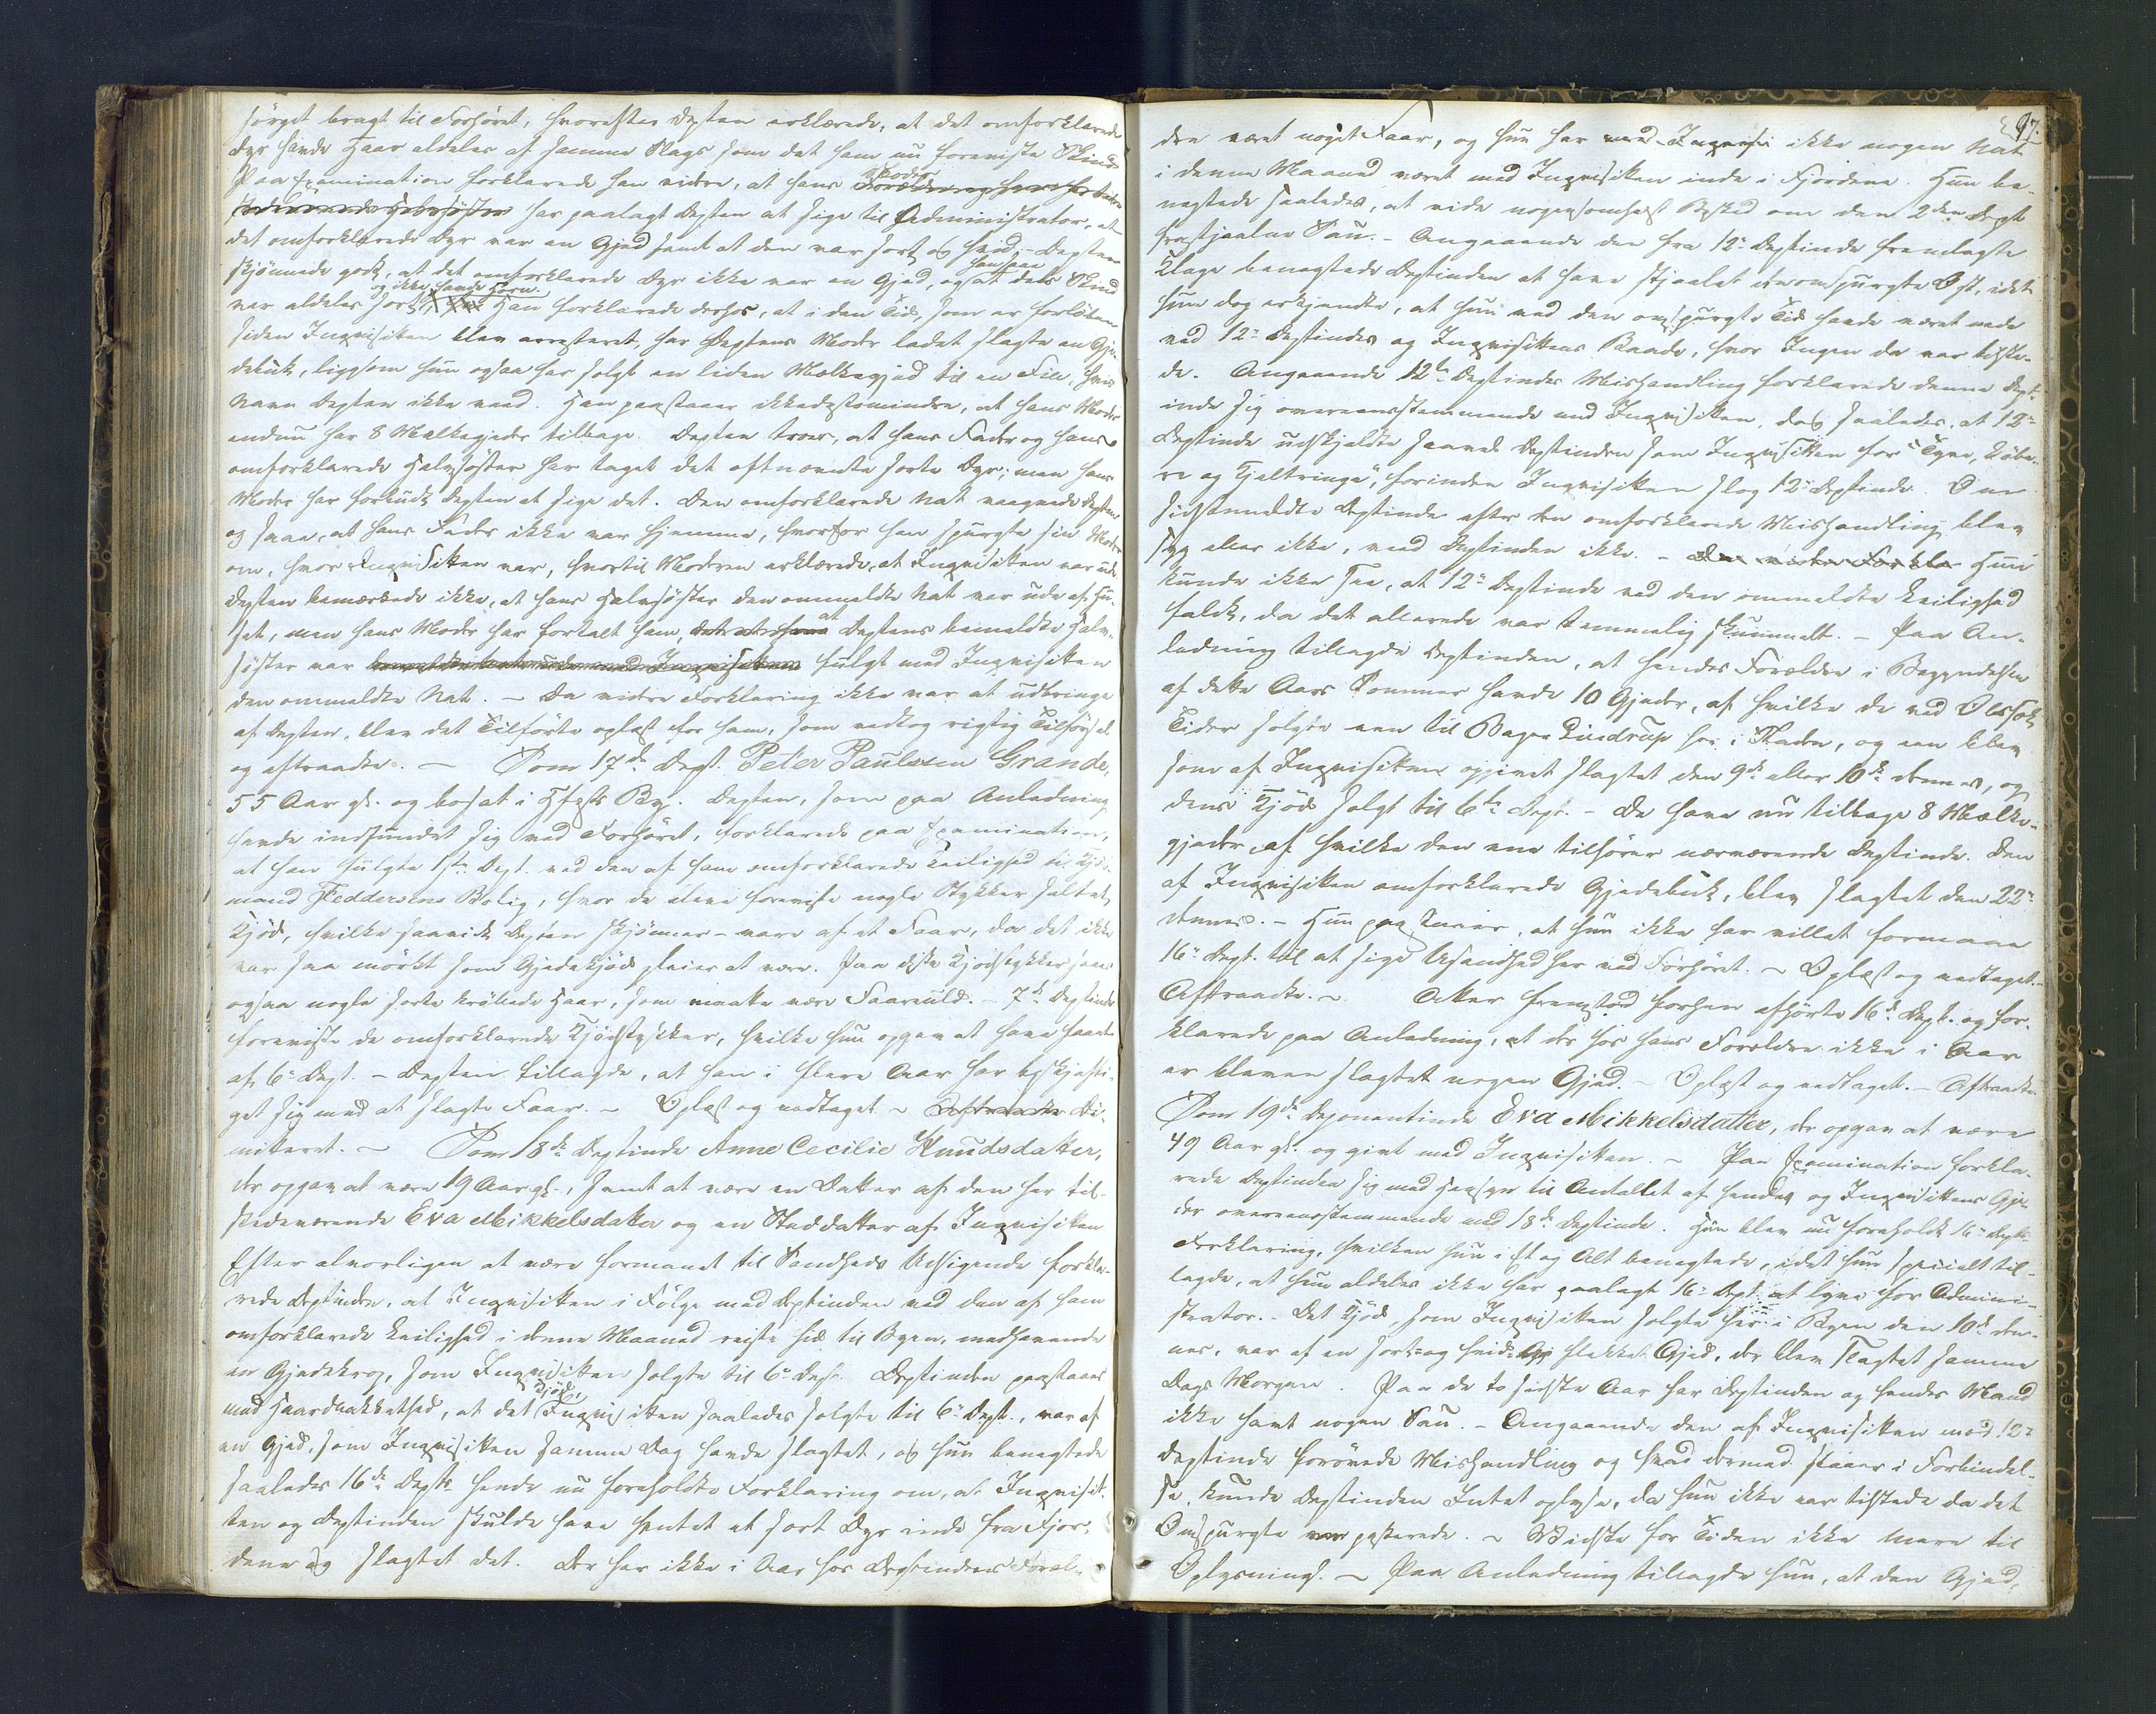 sørget bragt til Forhøret, hvorefter Depten erklærede, at det omforklarede
Dyr havde Haar aldeles af samme Slags som det ham nu foreviste Skind
Paa Examination forklarede han videre, at hans Moder
har paalagt Depten at sige til Administrator, at
det omforklarede Dyr var en Gjed samt at den var sort og hvid. Depten
skjønnede godt, at det omforklarede Dyr ikke var en Gjed, og han saae at dets Skind
var aldeles sort, og ikke havde Horn. Han forklarede derhos, at i den Tid, som er forløben
siden Inqvisiten blev arresteret, har Deptens Moder ladet slagte en Gje-
debuk, ligesom hun ogsaa har solgt en liden Melkegjed til en Fin, hvis
Navn Depten ikke veed. Han paastaaer ikkedestomindre, at hans Moder
endnu har 8 Melkegjeder tilbage. Depten troer, at hans Fader og hans
omforklarede Halvsøster har taget det oftnævnte sorte Dyr; men hans
Moder har forbudt Depten at sige det. Den omforklarede Nat vaagnede Depten
og saae, at hans Fader ikke var hjemme, hvorfor han spurgte sin Moder
om, hvor Inqvisiten var, hvortil Moderen erklærede, at Inqvisiten var ude.
Depten bemærkede ikke, at hans Halvsøster den ommeldte Nat var ude af Hu-
set, men hans Moder har fortalt ham, at Deptens bemeldte Halv-
søster var fulgt med Inqvisiten
den ommeldte Nat. – Da videre Forklaring ikke var at udbringe
af Depten, blev det Tilførte oplæst for ham, som vedtog rigtig Tilførsel
og aftraadte. – Som 17de Dept. Peter Paulsen Grande,
55 Aar gl. og bosat i Hfests By. Depten, som paa Anledning
havde indfundet sig ved Forhøret, forklarede paa Examination,
at han fulgte 1ste Dept. ved den af ham omforklarede Leilighed til Kjøb-
mand Feddersens Bolig, hvor de bleve foreviste nogle Stykker saltet
Kjød, hvilke saavidt Depten skjønner – vare af et Faar, da det ikke
var saa mørkt som Gjedekjød pleier at være. Paa disse Kjødstykker saaes
ogsaa nogle sorte krøllede Haar, som maatte være Faareuld. – 7de Deptinde
foreviste de omforklarede Kjødstykker, hvilke hun opgav at have faaet
af 6te Dept. – Depten tillagde, at han i flere Aar har beskjæfti-
get sig med at slagte Faar. – Oplæst og vedtaget. – Aftraadte Di-
mitteret. – Som 18de Deptinde Anne Cecilie Knudsdatter,
der opgav at være 19 Aar gl., samt at være en Datter af den her til-
stedeværende Eva Mikkelsdatter og en Steddatter af Inqvisiten
Efter alvorligen at være formanet til Sandheds Udsigende forkla-
rede Deptinden, at Inqvisiten i Følge med Deptinden ved den af ham
omforklarede Leilighed i denne Maaned reiste hid til Byen, medhavende
en Gjedekrop, som Inqvisiten solgte til 6te Dept. Deptinden paastaaer
med Haardnakkethed, at det Kjød, Inqvisiten saaledes solgte til 6te Dept., var af
en Gjed, som Inqvisiten samme Dag havde slagtet, og hun benegtede
saaledes 16de Depts hende nu foreholdte Forklaring om, at Inqvisi-
ten og Deptinden skulde have hentet et sort Dyr inde fra Fjor-
dene og slagtet det. Der har ikke i Aar hos Deptindens Foræl-
97.
dre været noget Faar, og hun har med Inqvisi ikke nogen Nat
i denne Maaned været med Inqvisiten inde i Fjordene. Hun be-
negtede saaledes, at vide nogensomhelst Besked om den 2den Dept
frastjaalne Sau. – Angaaende den fra 12te Deptinde fremlagte
Klage benegtede Deptinden at have stjaalet den omspurgte Ost, idet
hun dog erkjendte, at hun ved den omspurgte Tid havde været nede
ved 12te Deptindes og Inqvisitens Baade, hvor Ingen da var tilste-
de. Angaaende 12te Deptindes Mishandling forklarede denne Dept-
inde sig overeensstemmende med Inqvisiten, dog saaledes, at 12te
Deptinde udskjældte saavel Deptinden som Inqvisiten for "Tyve, Røve-
re og Kjeltringe", forinden Inqvisiten slog 12te Deptinde. Om
sidstmeldte Deptinde efter den omforklarede Mishandling blev
syg eller ikke, veed Deptinden ikke. – Den videre Forkla Hun
kunde ikke see, at 12te Deptinde ved den ommeldte Leilighed
faldt, da det allerede var temmelig skummelt. – Paa An-
ledning tillagde Deptinden, at hendes Forældre i Begyndelsen
af dette Aars Sommer havde 10 Gjeder, af hvilke de ved Olsok
Tider solgte een til Bager Lindrup her i Staden, og een blev
som af Inqvisiten opgivet slagtet den 9de eller 10de dennes, og
dens Kjød solgt til 6te Dept. – De have nu tilbage 8 Melke-
gjeder, af hvilke den ene tilhører nærværende Deptinde. Den
af Inqvisiten omforklarede Gjedebuk, blev slagtet den 22de
dennes. – Hun paastaaer, at hun ikke har villet formaae
16de Dept. til at sige Usandhed her ved Forhøret. – Oplæst og vedtaget. –
Aftraadte. – Atter fremstod forhen afhørte 16de Dept. og for-
klarede paa Anledning, at der hos hans Forældre ikke i Aar
er bleven slagtet nogen Gjed. – Oplæst og vedtaget. – Aftraadte.
Som 19de Deponentinde Eva Mikkelsdatter, der opgav at være
49 Aar gl. og givt med Inqvisiten. – Paa Examination forkla-
rede Deptinden sig med Hensyn til Antallet af hendes og Inqvisitens Gje-
der overeensstemmende med 18de Deptinde. Hun blev nu foreholdt 16de Depts
Forklaring, hvilken hun i Et og Alt benegtede, idet hun specielt til-
lagde, at hun aldeles ikke har paalagt 16de Dept. at lyve for Admini-
strator. – Det Kjød, som Inqvisiten solgte her i Byen den 10de den-
nes, var af en sort- og hvid flekket Gjed, der blev slagtet samme
Dags Morgen. Paa de to sidste Aar har Deptinden og hendes Mand
ikke havt nogen Sau. – Angaaende den af Inqvisiten mod 12te
Deptinde forøvede Mishandling og hvad dermed staaer i Forbindel-
se, kunde Deptinden Intet oplyse, da hun ikke var tilstede da det
Omspurgte passerede. – Vidste for Tiden ikke mere til
Oplysning. – Paa Anledning tillagde hun, at den Gjed,